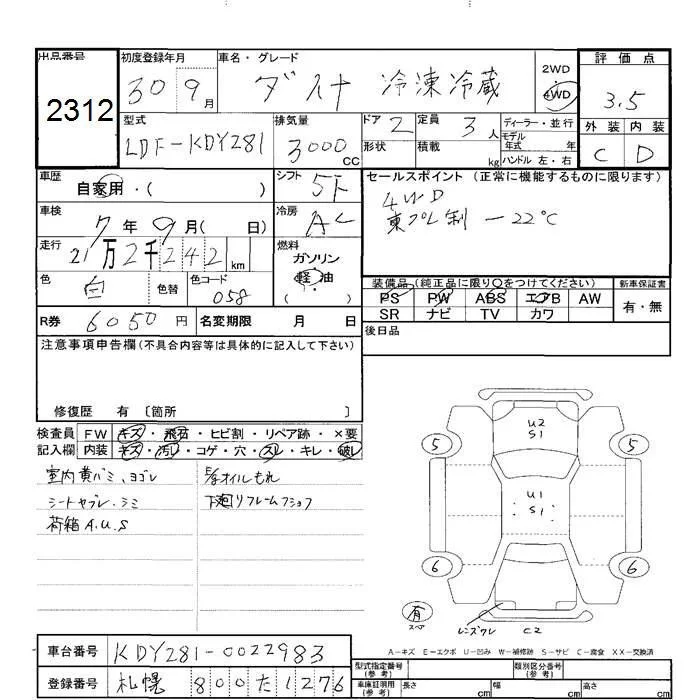 出品番号 2312
初度登録年月 30 9月
車名・グレード ダイナ 冷凍冷蔵
2WD
4WD
評価点 3.5
外装 C 内装 D
型式 LDF-KDY281
排気量 3000 CC
ドア 2 形状
定員 3人 積載 kg
ディーラー・並行
モデル年式 年式
ハンドル 左・右
車歴 自家用・( )
シフト 5F
車検 7年9月( 日)
冷房 AC
走行 21万2千242 km
燃料 ガソリン 軽油 ( )
色 白 色替 色コード 058
R券 6050円 名変期限 月 日
セールスポイント (正常に機能するものに限ります)
4WD
東プレ製 -22℃
装備品(純正品に限り○をつけてください)
PS PW ABS エアB AW
SR ナビ TV カワ
新車保証書
有・無
後日品
注意事項申告欄(不具合内容等は具体的に記入して下さい)
修復歴 有 〔箇所 〕
検査員 FW キズ・飛石・ヒビ割・リペア跡・×要
記入欄 内装 キズ・汚レ・コゲ・穴・スレ・キレ・破レ
室内黄バミ、ヨゴレ
シートヤブレ・シミ
荷箱A.U.S
オイルもれ
下廻りフレームフショク
U2
S1
5 5
U1
S1
6 6
有
スペア
レンズワレ C2
A-キズ E-エクボ U-凹み W-補修跡 S-サビ C-腐食 XX-交換済
車台番号 KDY281-0022983
登録番号 札幌 800 た 1276
型式指定番号 (参考) 類別区分番号 (参考)
車庫証明用 (参考) 長さ cm 幅 cm 高さ cm